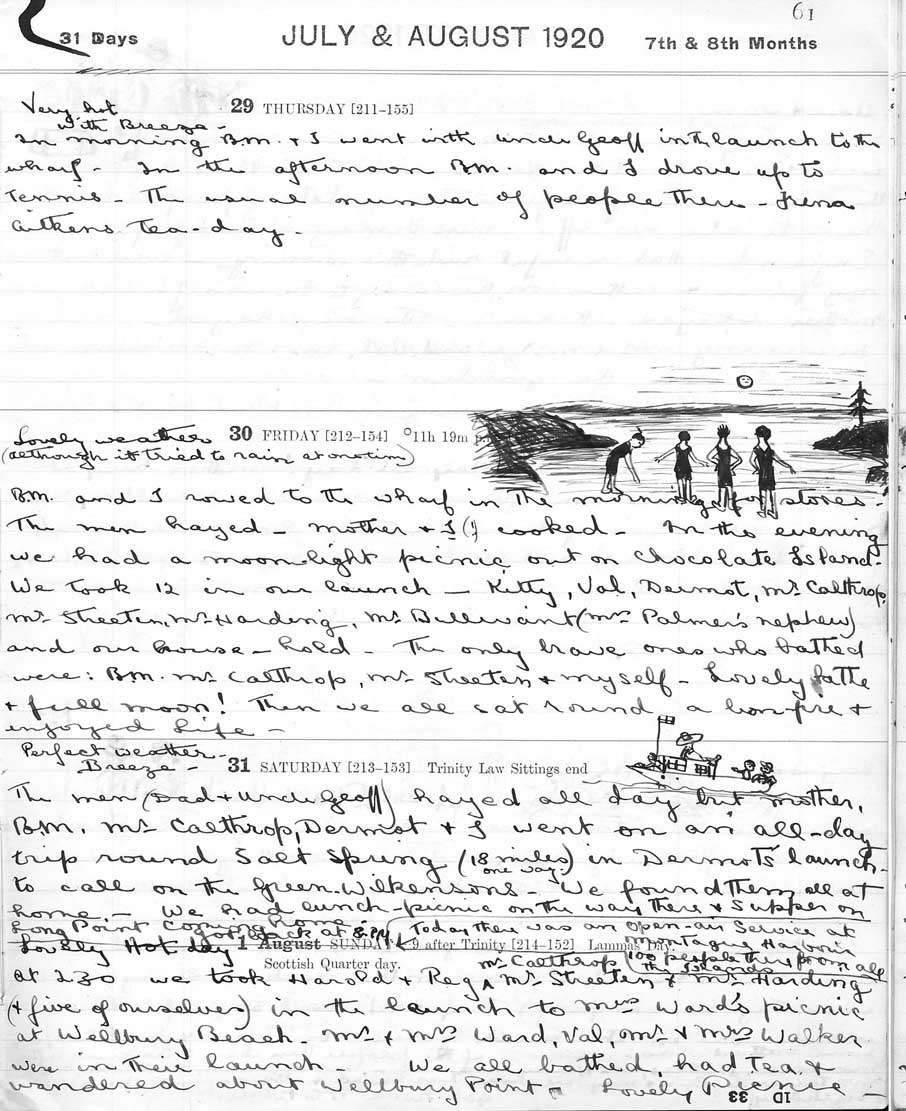 61
31 Days JULY & AUGUST 1920 7th & 8th Months
Very hot 29 THURSDAY [211–155]
with Breeze -
In morning B.M. & I went with Uncle Geoff in the launch to the
wharf - In the afternoon B.M. and I drove up to
Tennis - The usual number of people there - Irena
Aitkens Tea-day -
Lovely weather 30 FRIDAY [212–154] 11h 19m p.m.
(although it tried to rain at one time)
B.M. and I rowed to the wharf in the morning for stores -
The men hayed - mother & I (!) cooked - In the evening
we had a moonlight picnic out on Chocolate Island -
We took 12 in our launch - Kitty, Val, Dermot, Mr Calthrop,
Mr Streeten, Mr Harding, Mr Bullivant (Mrs Palmer's nephew)
and our house-hold - The only brave ones who bathed
were: B.M. Mr Calthrop, Mr Streeten & myself - Lovely bathe
& full moon! Then we all sat round a bon-fire &
enjoyed life -
Perfect weather -
Breeze - 31 SATURDAY [213–153] Trinity Law Sittings end
The men (Dad & Uncle Geoff) hayed all day but mother,
B.M. Mr Calthrop, Dermot & I went on an all-day
trip round Salt Spring (18 miles one way) in Dermot's launch -
to call on the Green-Wilkensons - We found them all at
home - We had lunch-picnic on the way there & supper on
Long Point coming home - got back at 8. P.M.
Lovely Hot day 1 August SUNDAY 9 after Trinity [214–152] Lammas Day
Today there was an open-air Service at
Montague Harbour
100 people there from all
the Islands
Scottish Quarter day.
At 2.30 we took Harold & Reg, Mr Calthrop Mr Streeten & Mr Harding
(& five of ourselves) in the launch to Mrs Ward's picnic
at Wellbury Beach. Mr & Mrs Ward, Val, Mr & Mrs Walker
were in their launch - We all bathed, had Tea &
wandered about Wellbury Point - Lovely Picnic
1D 33